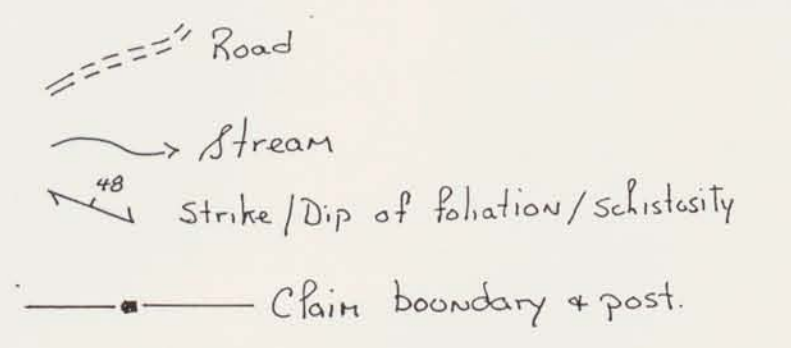 Road
Stream
48
Strike/Dip of foliation/schistosity
Claim boundary & post.